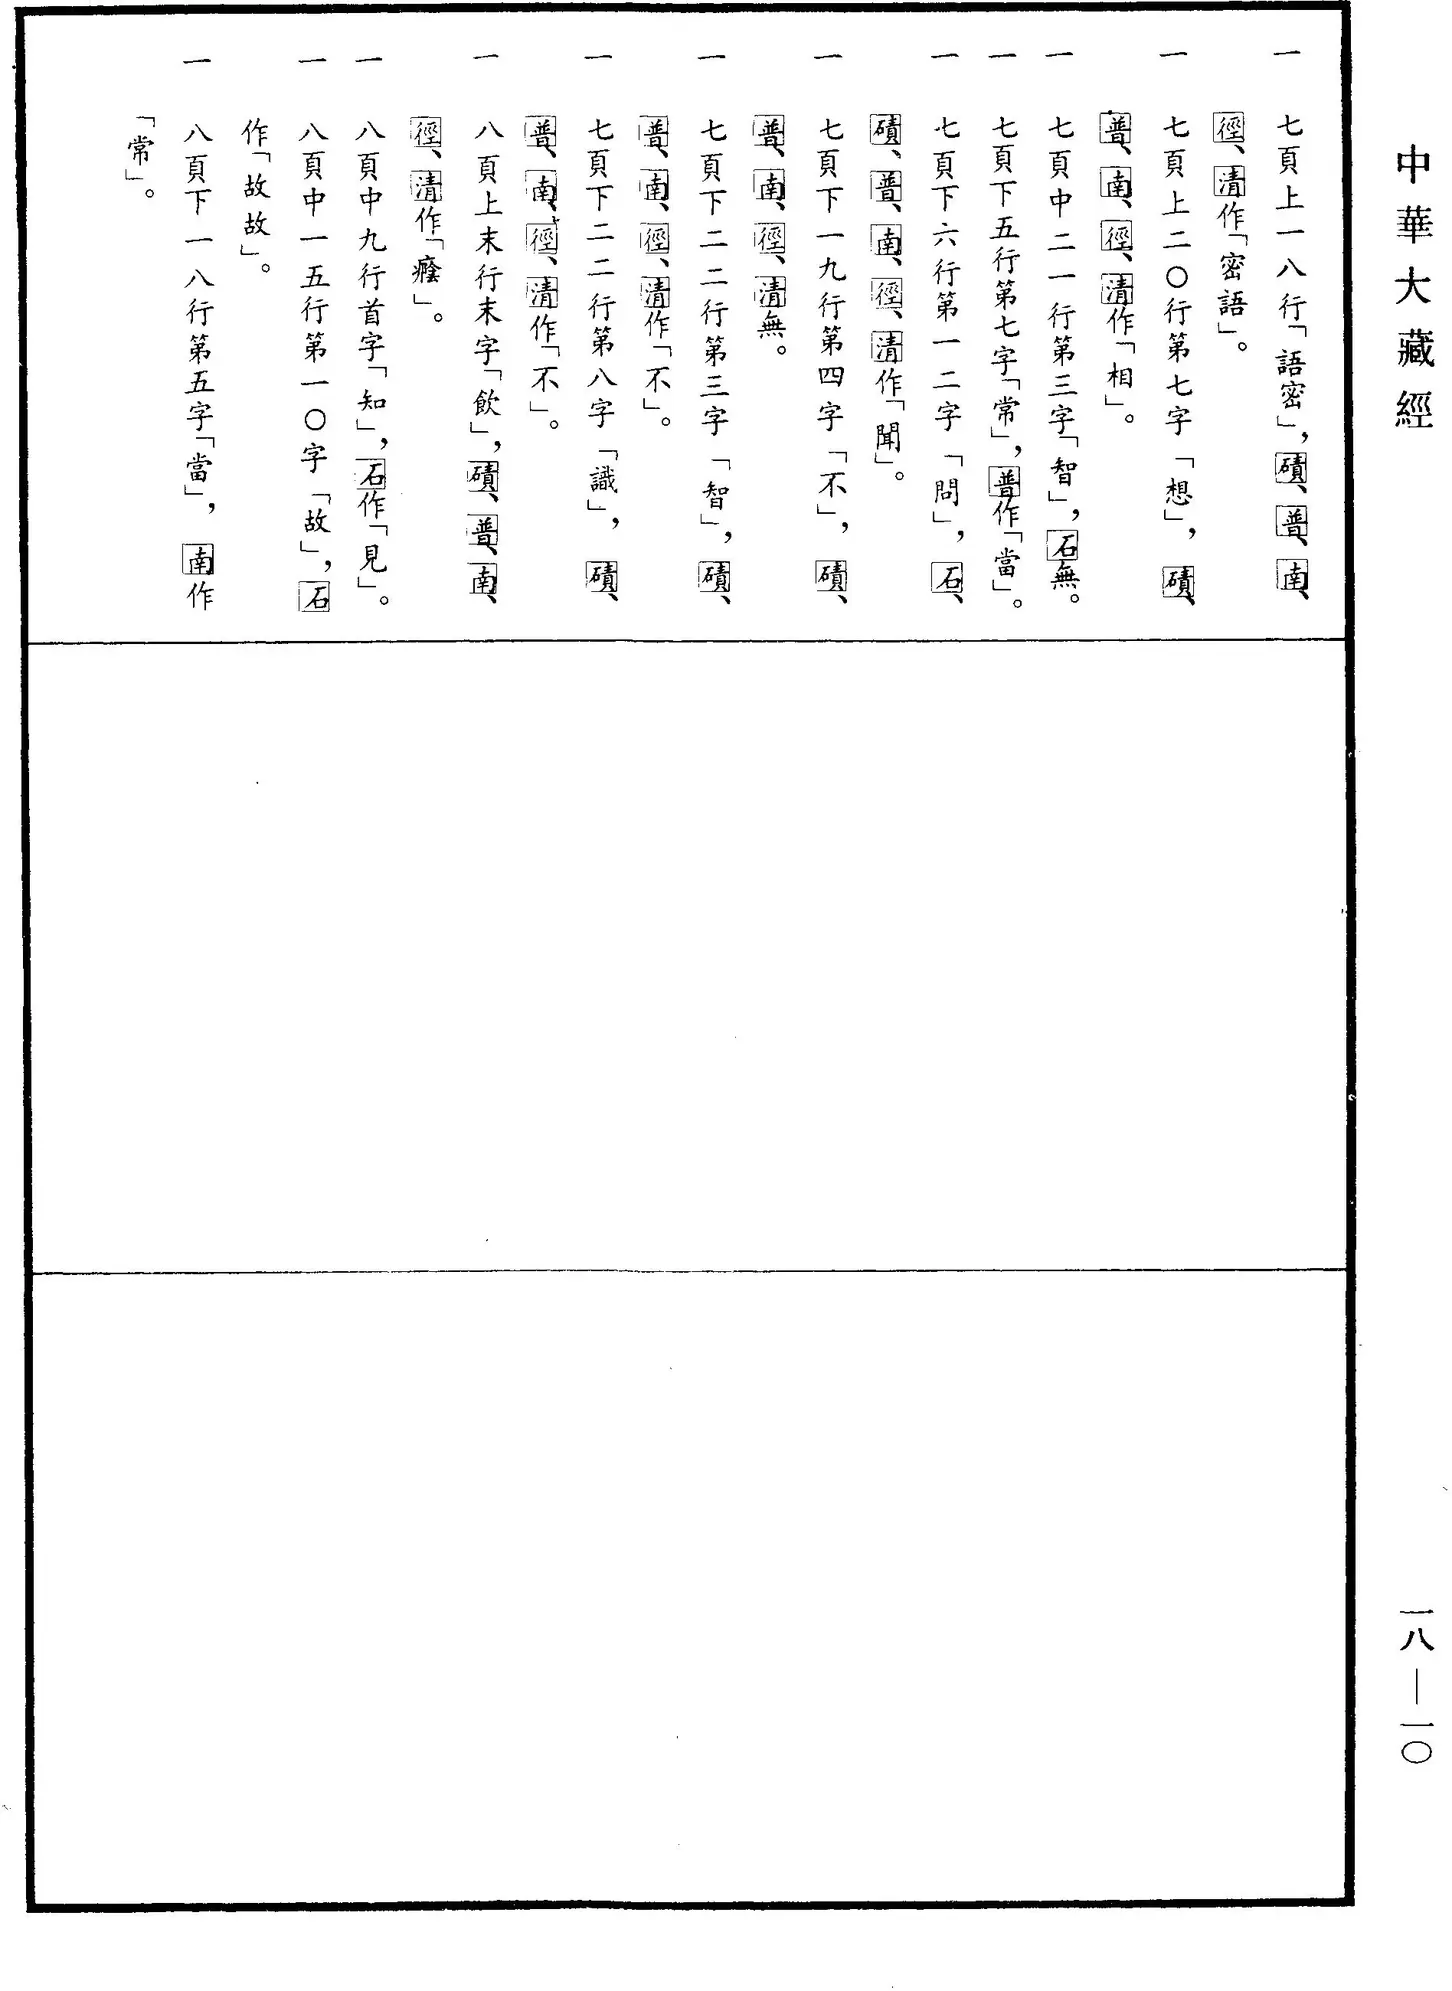 中華大藏經
一八—一〇
一 七頁上一八行「語密」，磧、普、南、
徑、清作「密語」。
一 七頁上二〇行第七字「想」，磧、
普、南、徑、清作「相」。
一 七頁中二一行第三字「智」，石無。
一 七頁下五行第七字「常」，普作「當」。
一 七頁下六行第一二字「問」，石、
磧、普、南、徑、清作「聞」。
一 七頁下一九行第四字「不」，磧、
普、南、徑、清無。
一 七頁下二二行第三字「智」，磧、
普、南、徑、清作「不」。
一 七頁下二二行第八字「識」，磧、
普、南、徑、清作「不」。
一 八頁上末行末字「飲」，磧、普、南、
徑、清作「癊」。
一 八頁中九行首字「知」，石作「見」。
一 八頁中一五行第一〇字「故」，石
作「故故」。
一 八頁下一八行第五字「當」，南作
「常」。